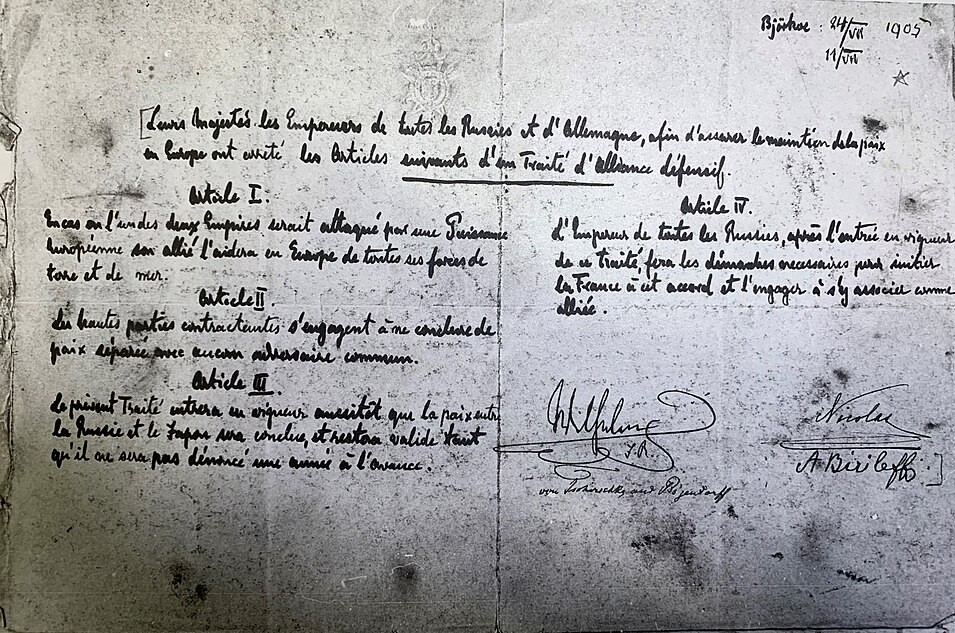 Björkoe : 24/VII 1905
11/VII
[Leurs Majestés les Empereurs de toutes les Russies et d'Allemagne, afin d'assurer le maintien de la paix
en Europe ont arrêté les Articles suivants d'un Traité d'Alliance défensif.
Article I.
En cas où l'un des deux Empires serait attaqué par une Puissance
Européenne son allié l'aidera en Europe de toutes ses forces de
terre et de mer.
Article II.
Les hautes parties contractantes s'engagent à ne conclure de
paix séparée avec aucun adversaire commun.
Article III
Le présent Traité entrera en vigueur aussitôt que la paix entre
la Russie et le Japon sera conclue, et restera valide tant
qu'il ne sera pas dénoncé une année à l'avance.
Article IV.
L'Empereur de toutes les Russies, après l'entrée en vigueur
de ce traité, fera les démarches necessaires pour initier
la France à cet accord et l'engager à s'y associer comme
alliée.
Wilhelm
I.R.
von Tschirschky und Bögendorff
Nicolas
A Birileff.]